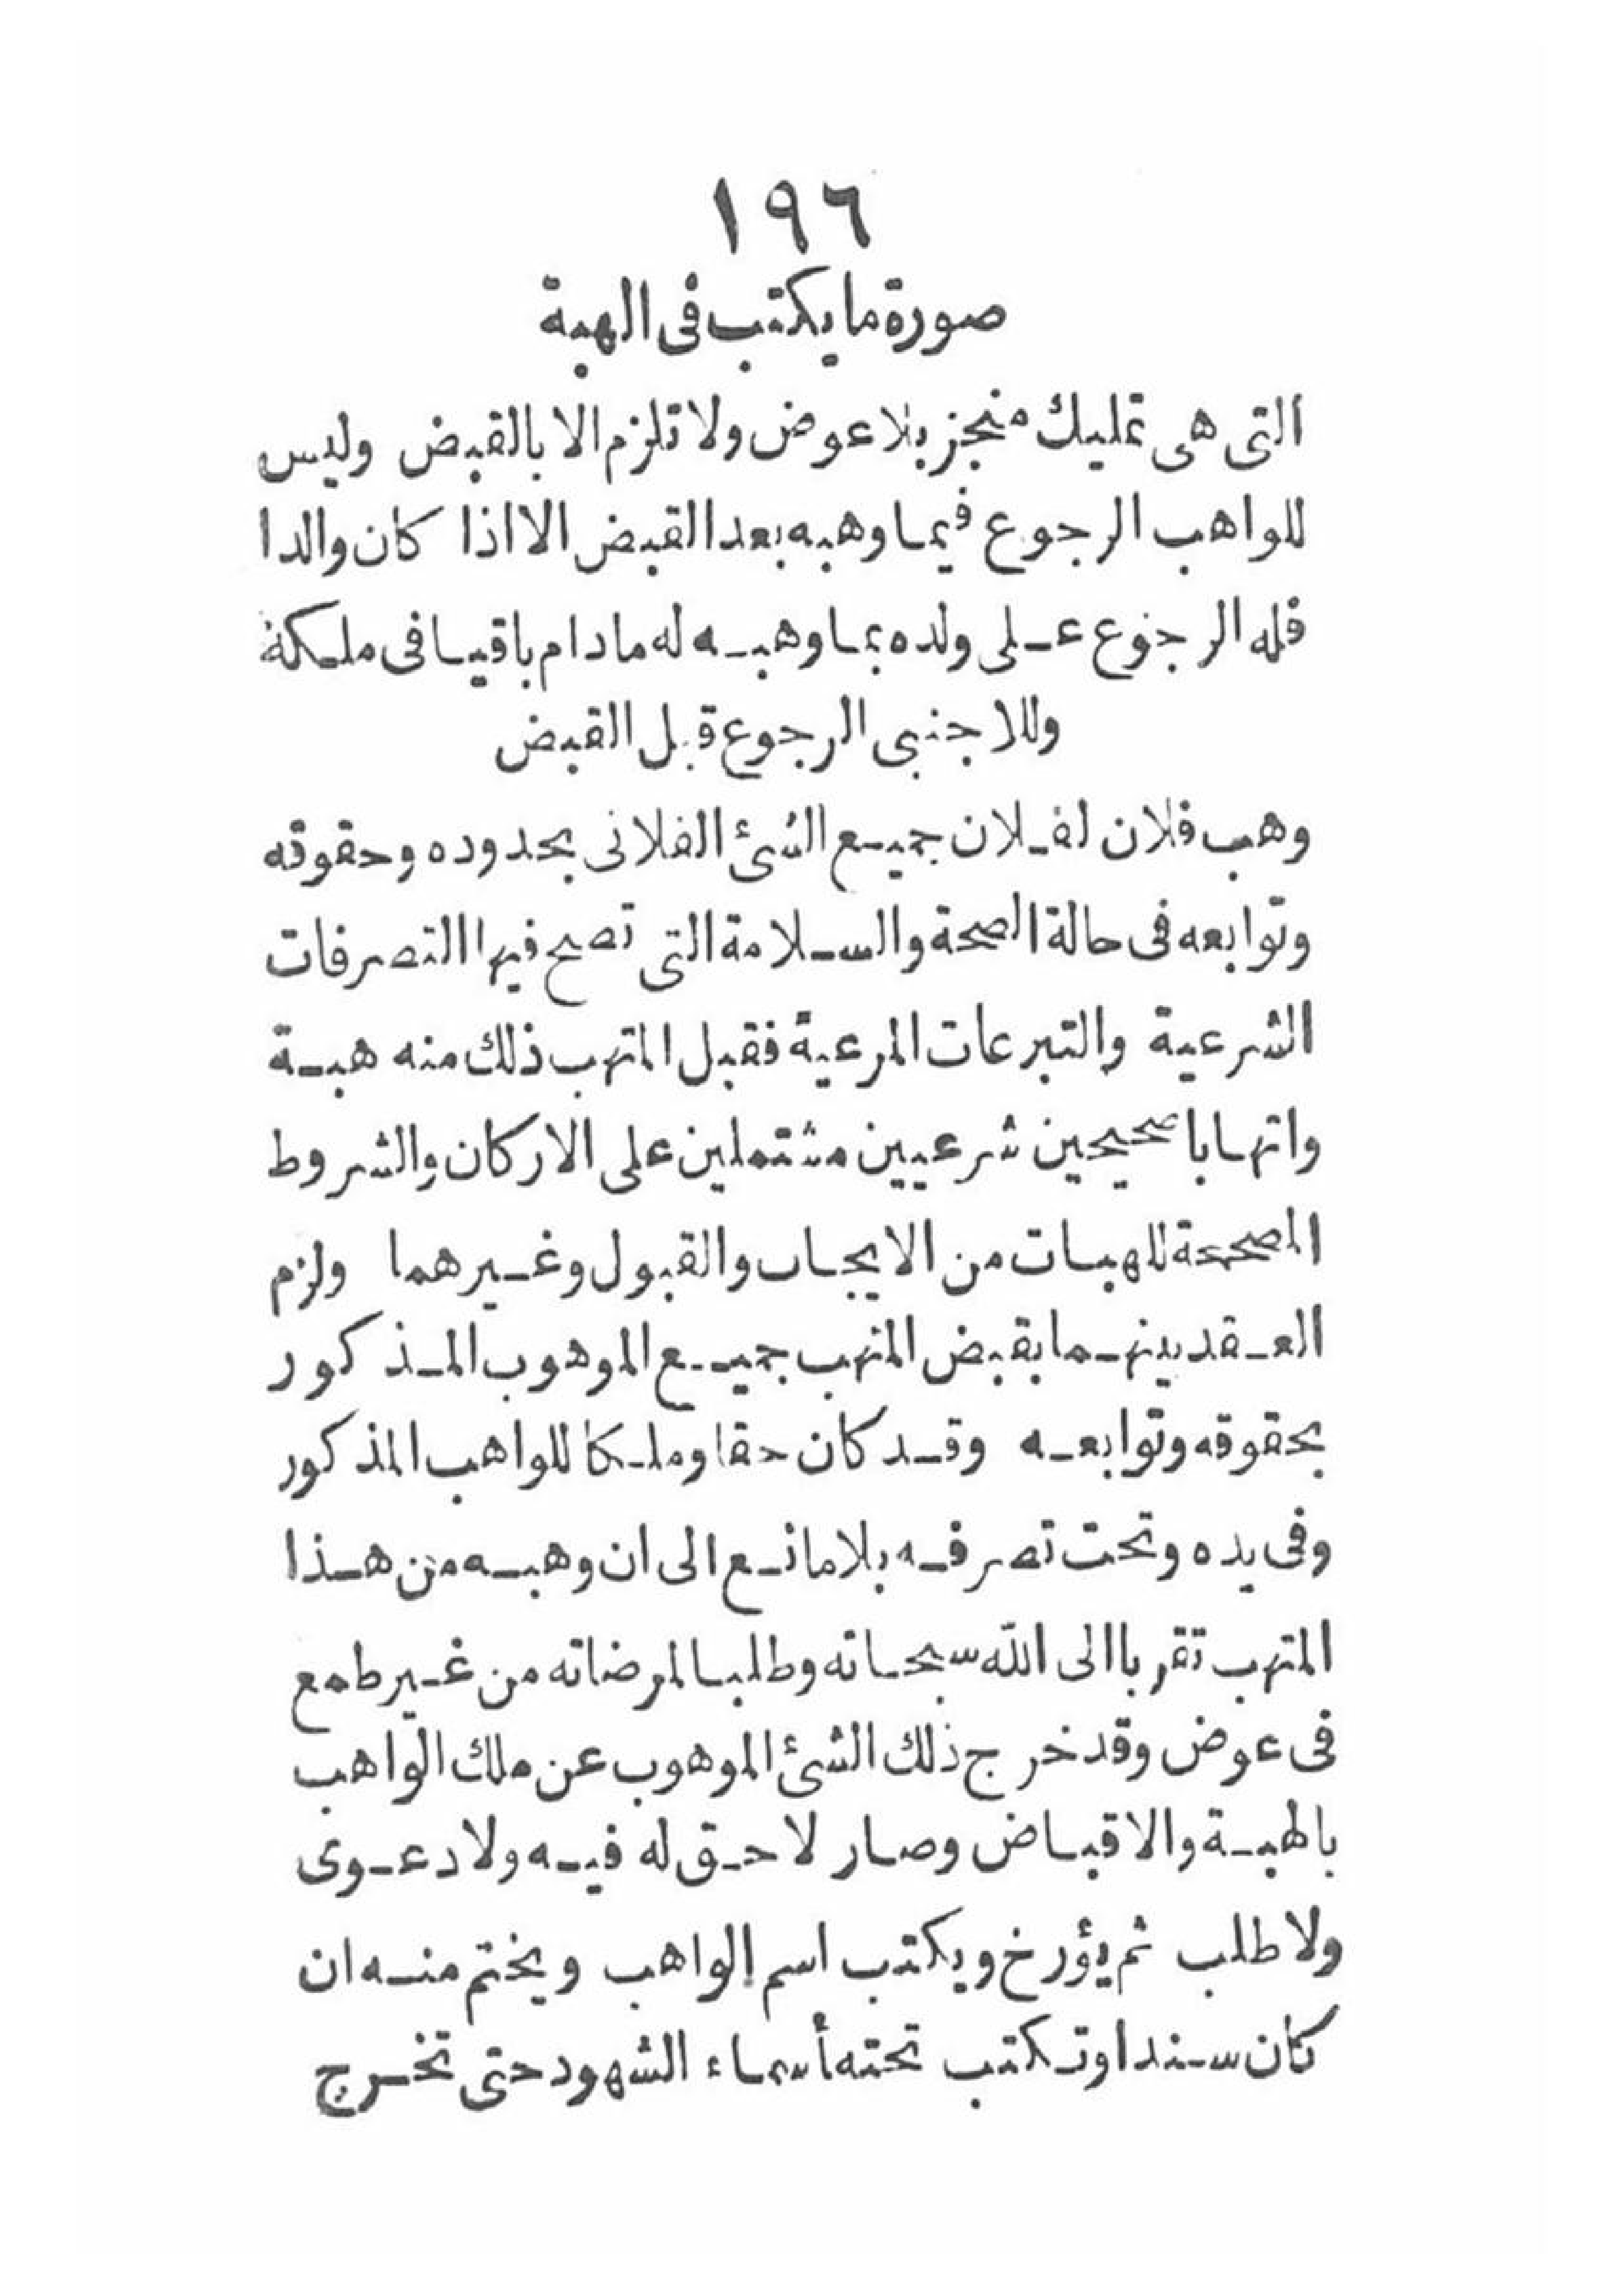 ١٩٦
صورة ما يكتب فى الهبة
التى هى تمليك منجز بلا عوض ولا تلزم الا بالقبض وليس
للواهب الرجوع فيما وهبه بعد القبض الا اذا كان والدا
فله الرجوع على ولده بما وهبه له ما دام باقيا فى ملكه
وللاجنبى الرجوع قبل القبض
وهب فلان لفلان جميع الشئ الفلانى بحدوده وحقوقه
وتوابعه فى حالة الصحة والسلامة التى تصح فيها التصرفات
الشرعية والتبرعات المرعية فقبل المتهب ذلك منه هبة
واتهابا صحيحين شرعيين مشتملين على الاركان والشروط
المصححة للهبات من الايجاب والقبول وغيرهما ولزم
العقد بينهما بقبض المتهب جميع الموهوب المذكور
بحقوقه وتوابعه وقد كان حقا وملكا للواهب المذكور
وفى يده وتحت تصرفه بلا مانع الى ان وهبه من هذا
المتهب تقربا الى الله سبحانه وطلبا لمرضاته من غير طمع
فى عوض وقد خرج ذلك الشئ الموهوب عن ملك الواهب
بالهبة والاقباض وصار لا حق له فيه ولا دعوى
ولا طلب ثم يؤرخ ويكتب اسم الواهب ويختم منه ان
كان سندا وتكتب تحته أسماء الشهود حتى تخرج